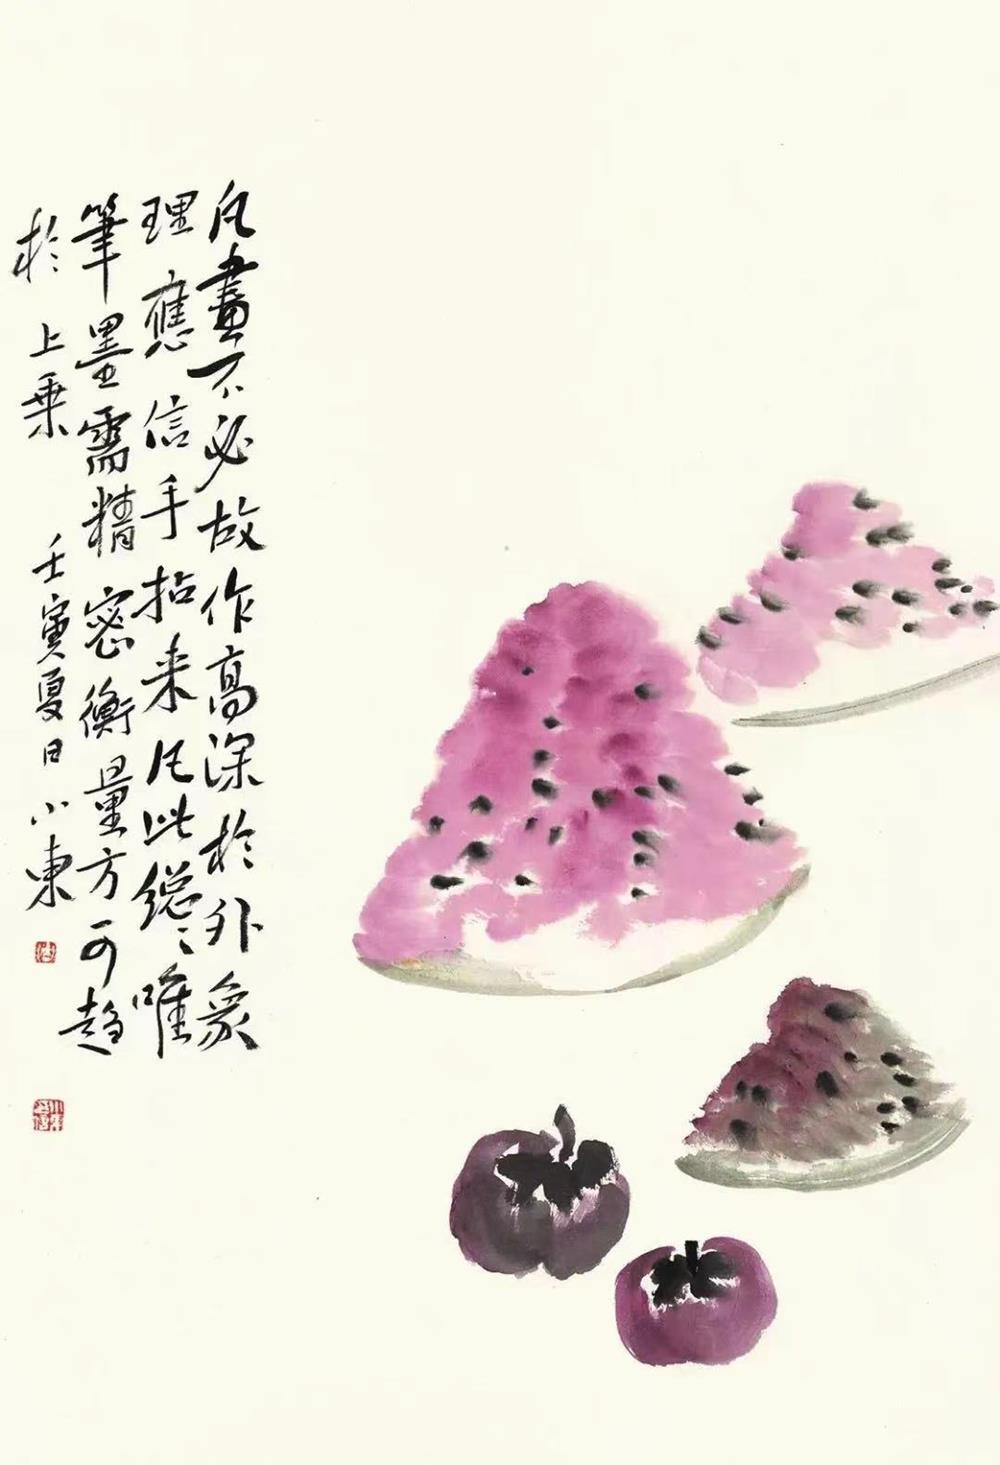 凡畫不必故作高深於外象
理應信手拈来凡此總〻唯
筆墨需精密衡量方可趋
於上乘 壬寅夏日小東